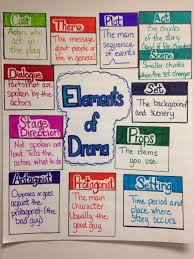 Cast
Actors who
act in
the play
Theme
The message
about people
or life in
general
Plot
The main
sequence of
events
Act
Chunks of
the story
Scene
Smaller chunks
when the set changes
Dialogue
spoken by the
actors
Elements
of
Drama
Set
The background
and scenery
Stage
Direction
Not spoken out
loud. Tells
the actors
what to do
Props
The items
you use
Antagonist
Opposes or goes
against the
protagonist (the
bad guys)
Protagonist
The main
character.
Usually the
good guy
Setting
Time period and
place where
story occurs